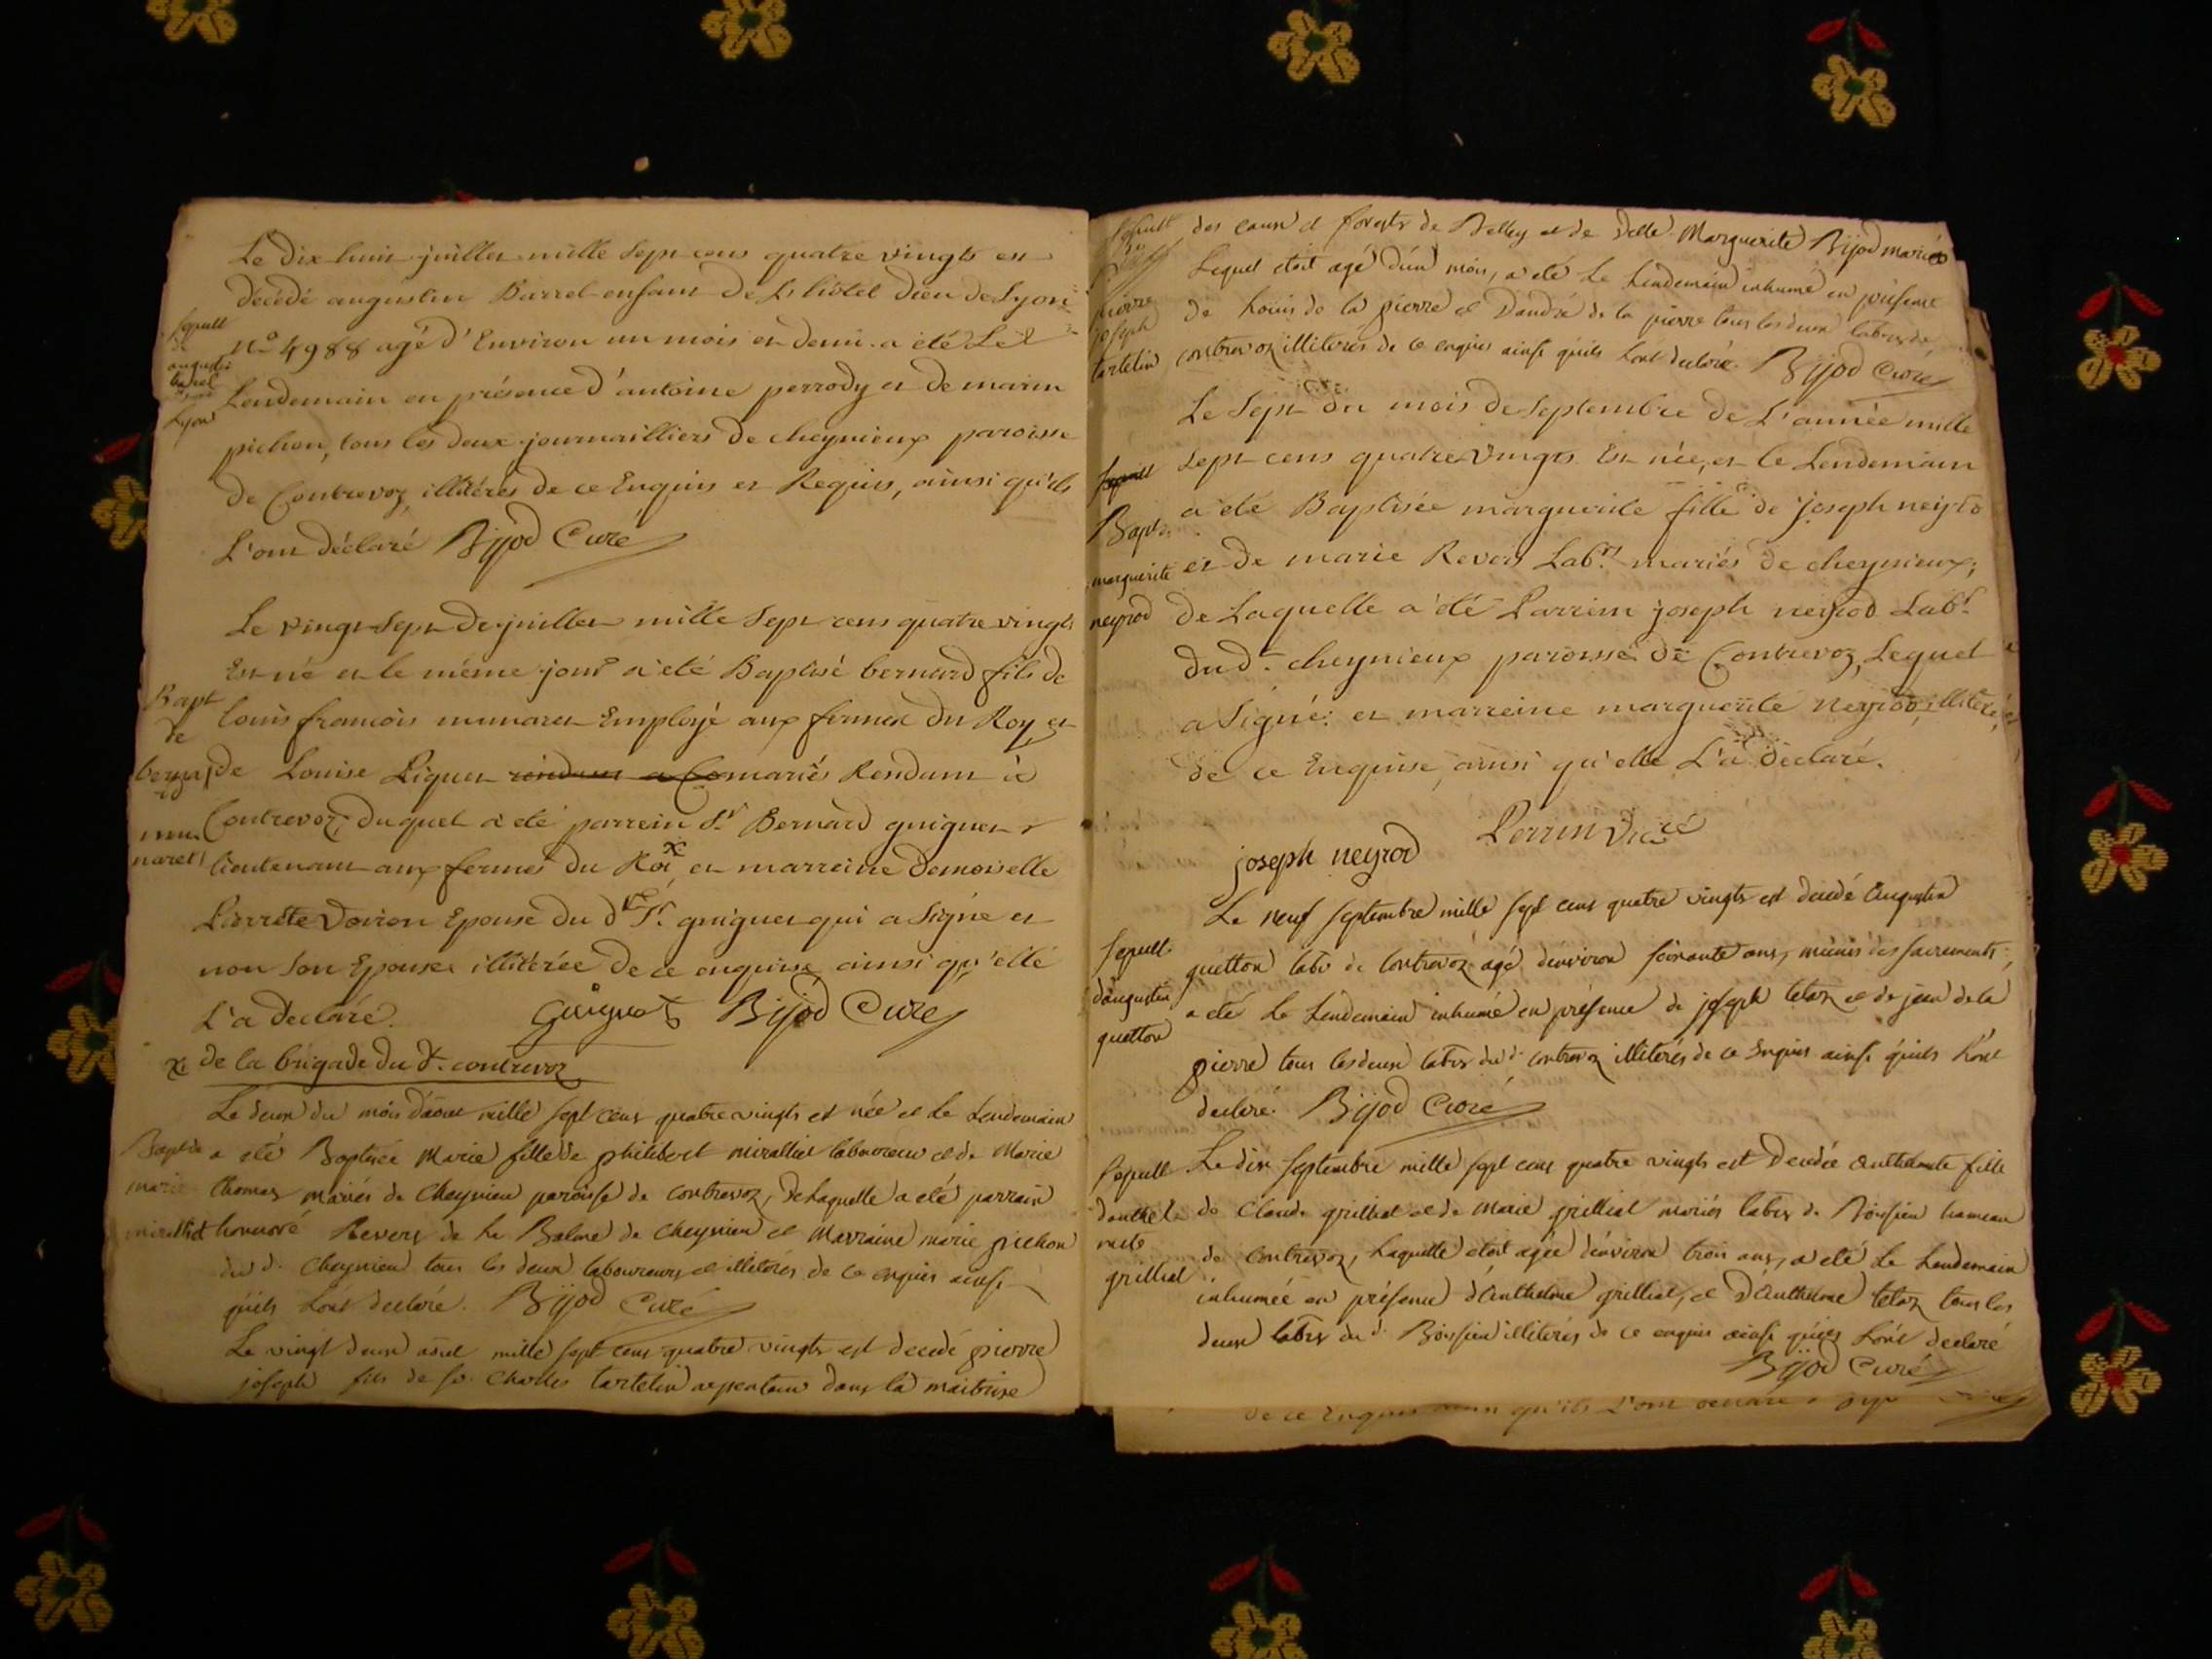 Le dix huit juillet mille sept cens quatre vingts est
décédé augustin Barret enfant de L'hôtel dieu de Lyon
sepult
de
augustin
barret
Lyon
n.o 4988 agé d'Environ un mois et demi a été Le
Lendemain en présence d'antoine perrody et de marin
pichon, tous les deux journailliers de cheynieux paroisse
de Contrevoz, illitérés de ce Enquis et Requis, ainsi qu'ils
L'ont déclaré Bijod Curé
Le vingt sept de juillet mille sept cens quatre vingts
Est né et le même jour a été Baptisé bernard fils de
Bapt
de
bernard
munaret
louis francois munaret Employé aux fermes du Roy et
de Louise Liguet mariés Residant à
Contrevoz, duquel a été parrein Sr Bernard guiguet
lieutenant aux fermes du Roi x et marreine demoiselle
Pierrete Dorion Epouse du d.t Sr. guiguet qui a signé et
non son Epouse illitérée de ce enquise ainsi qu'elle
L'a déclaré. Guiguet Bijod Curé
x de la brigade du d.t contrevoz
Le deux du mois d'aout mille sept cens quatre vingts est née et le Lendemain
Bapt de
marie
miralliet
a été Baptisée Marie fille de philibert miralliet laboureur et de Marie
thomas mariés de Cheynieu paroisse de contrevoz, de Laquelle a été parrain
honnoré Revery de la Balme de Cheynieu et Marraine marie pichon
du d. Cheynieu tous les deux laboureurs et illiterés de ce enquis ainsi
qu'ils L'ont declaré. Bijod Curé
Le vingt deux aout mille sept cens quatre vingts est decedé pierre
joseph fils de Sr. Charles tartelin arpenteur dans la maitrise
sepult
de
pierre
joseph
tartelin
des eaux et forests de Belley et de Delle. Marguerite Bijod mariés
Lequel etoit agé d'un mois, a eté Le Lendemain inhumé en présence
de Louis de la pierre et D'andré de la pierre tous les deux labrs de
contrevoz illiterés de ce enquis ainsi qu'ils L'ont declaré. Bijod Curé
Le Sept du mois de Septembre de L'année mille
sept cens quatre Vingts Est née, et le Lendemain
Bapt de
marguerite
neyrod
a été Baptisée marguerite fille de joseph neyrod
et de marie Revers Lab.rs mariés de cheynieux,
de Laquelle a été Parrein joseph neyrod Lab.r
dud.t cheynieux paroisse de Contrevoz, Lequel
a Signé: et marreine marguerite neyrod, illitérée
de ce Enquise, ainsi qu'elle L'a déclaré.
joseph neyrod Perrin Vicré
Le neuf septembre mille sept cens quatre vingts est decedé Augustin
sepult
d'augustin
quetton
quetton labr de Contrevoz agé d'environ soixante ans, muni des sacrements,
a eté Le Lendemain inhumé en présence de joseph tetaz et de jean de la
pierre tous les deux labrs du d. contrevoz illiterés de ce Enquis ainsi qu'ils L'ont
declaré. Bijod Curé
sepult
d'anthelmete
grilliet
Le dix septembre mille sept cens quatre vingts est Decedée anthelmete fille
de Claude grilliet et de Marie grilliet mariés labrs de Boissieu hameau
de Contrevoz, Laquelle etoit agée d'environ trois ans, a eté Le Lendemain
inhumée en présence d'Anthelme grilliet, et D'Anthelme tetaz tous les
deux labrs du d. Boissieu illiterés de ce enquis ainsi qu'ils L'ont declaré
Bijod Curé
de ce Enquis ainsi qu'ils L'ont déclaré